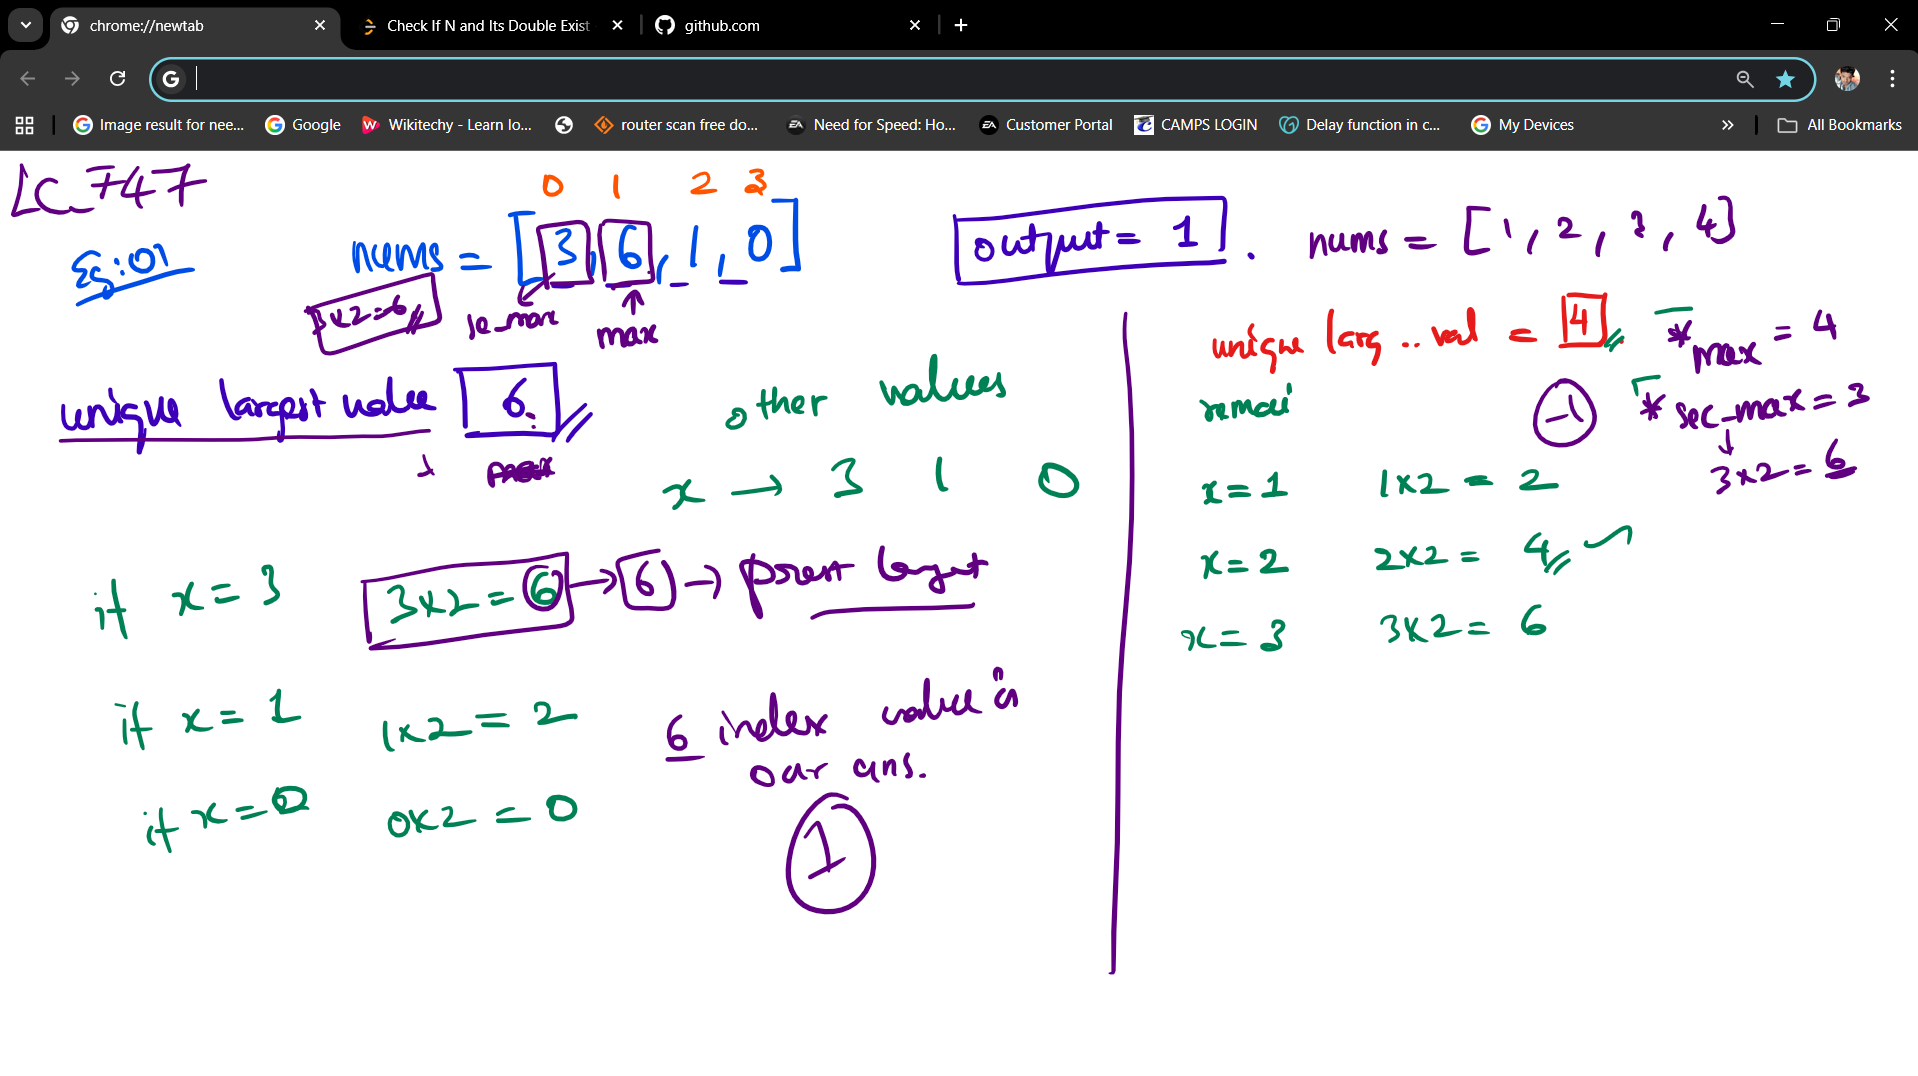 chrome://newtab
Check If N and Its Double Exist
github.com
Image result for nee...
Google
Wikitechy - Learn lo...
router scan free do...
Need for Speed: Ho...
Customer Portal
CAMPS LOGIN
Delay function in c...
My Devices
All Bookmarks
LC_747
0 1 2 3
Eg:01
nums = [3, 6, 1, 0]
output = 1.
nums = [1, 2, 3, 4]
3x2=6
se_max
max
unique largest value 6.
max
other values
x → 3 1 0
if x = 3
3x2 = 6 → 6 → present largest
if x = 1
1x2 = 2
if x = 0
0x2 = 0
6 index value is
our ans.
1
unique larg .. val = 4
* max = 4
remai
-1
* sec_max = 3
3x2 = 6
x = 1 1x2 = 2
x = 2 2x2 = 4
x = 3 3x2 = 6